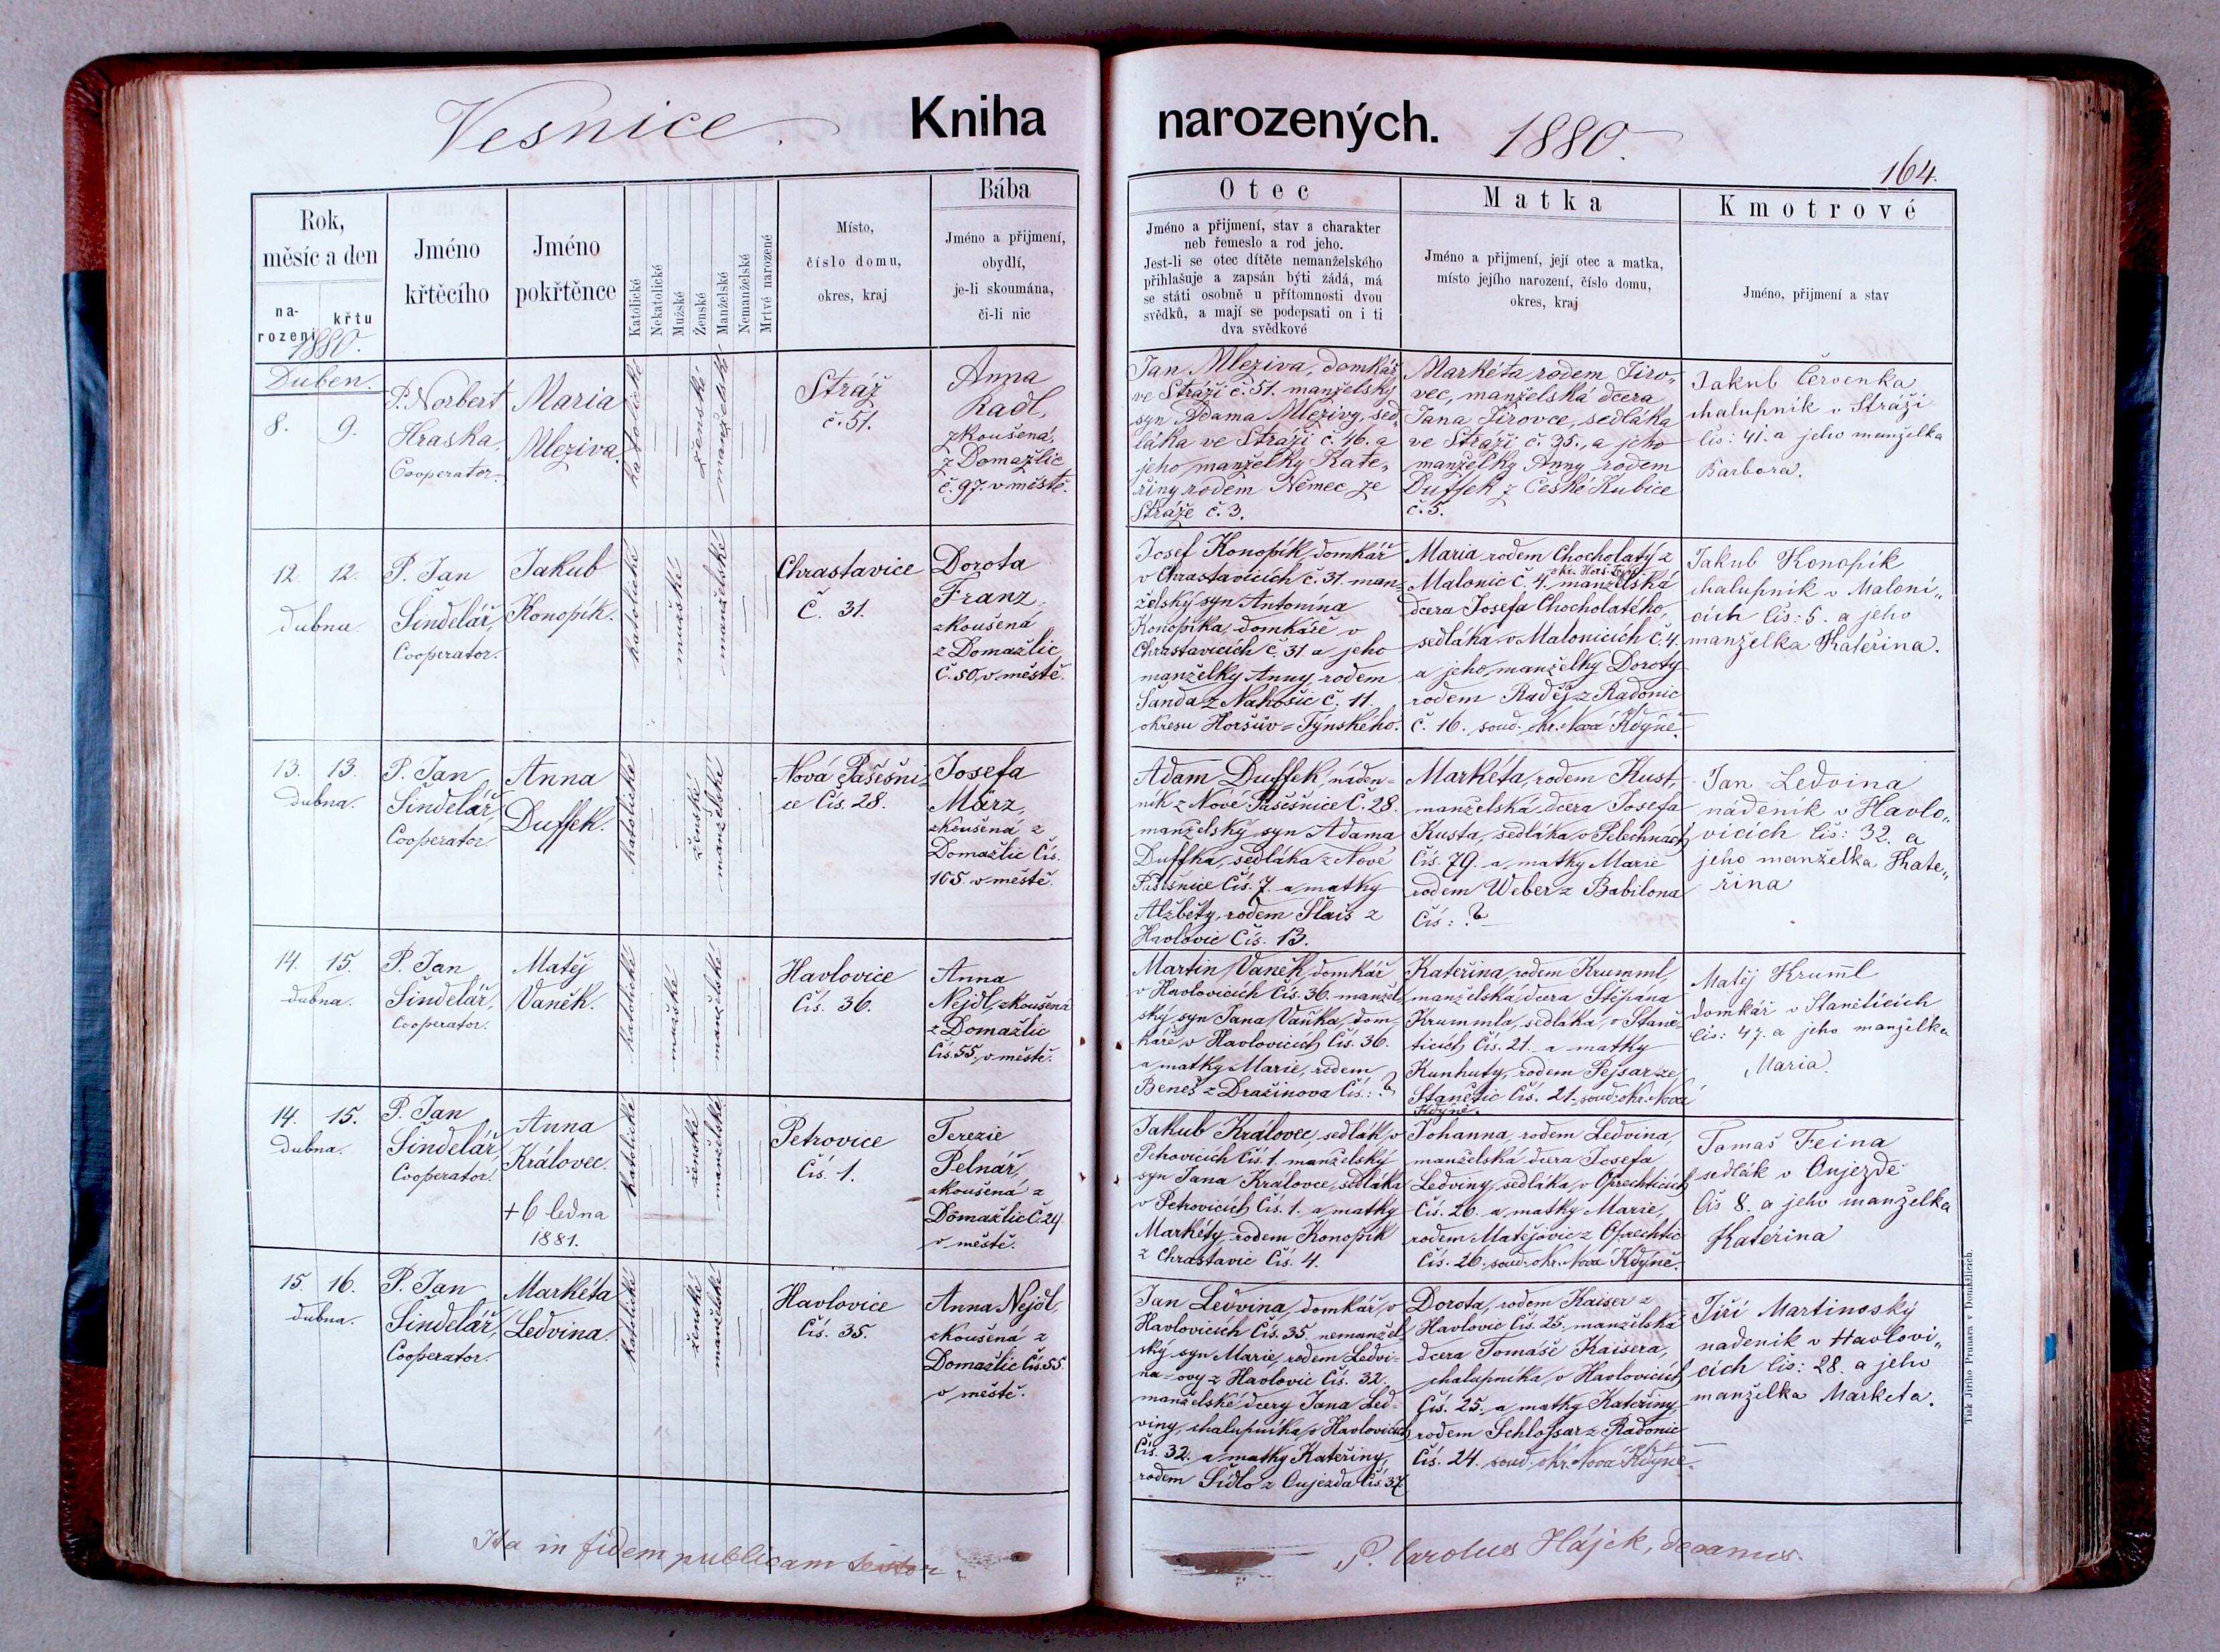 Vesnice.
Kniha
narozených.
1880.
164.
Rok,
měsíc a den
na-
rození
křtu
1880.
Jméno
křtěcího
Jméno
pokřtěnce
Katolické
Nekatolické
Mužské
Ženské
Manželské
Nemanželské
Mrtvé narozené
Místo,
číslo domu,
okres, kraj
Bába
Jméno a přijmení,
obydlí,
je-li skoumána,
či-li nic
Otec
Jméno a přijmení, stav a charakter
neb řemeslo a rod jeho.
Jest-li se otec dítěte nemanželského
přihlašuje a zapsán býti žádá, má
se státi osobně u přítomnosti dvou
svědků, a mají se podepsati on i ti
dva svědkové
Matka
Jméno a přijmení, její otec a matka,
místo jejího narození, číslo domu,
okres, kraj
Kmotrové
Jméno, přijmení a stav
Duben.
8. 9.
P. Norbert
Hraska,
Cooperator.
Maria
Mleziva.
katolické
ženské
manželské
Stráž
č. 51.
Anna
Radl,
zkoušená,
z Domažlic
č. 97. v městě.
Jan Mleziva, domkář
ve Stráži č. 51. manželský
syn Adama Mlezivy, sed„
láka ve Stráži č. 46. a
jeho manželky Kate„
řiny rodem Němec ze
Stráže č. 3.
Markéta rodem Jiro„
vec, manželská dcera
Jana Jírovce, sedláka
ve Stráži č. 35., a jeho
manželky Anny rodem
Duffek z České Kubice
č. 5.
Jakub Červenka
chalupník v Stráži
čís: 41. a jeho manželka
Barbora.
12. 12.
dubna.
P. Jan
Šindelář,
Cooperator.
Jakub
Konopík.
katolické
mužské
manželské
Chrastavice
Č. 31.
Dorota
Franz,
zkoušená
z Domažlic
Č. 50, v městě.
Josef Konopík, domkář
v Chrastavicích č. 31. man-
želský syn Antonína
Konopíka, domkáře v
Chrastavicích č. 31 a jeho
manželky Anny, rodem
Šanda z Nahošic č. 11.
okresu Horšův-Týnského.
Maria rodem Chocholatý z
Malonic č. 4. manželská
dcera Josefa Chocholatého,
sedláka v Malonicích č. 4.
a jeho manželky Doroty
rodem Raděj z Radonic
č. 16. soud. okr. Nová Kdyně.
Jakub Konopík
chalupník v Maloni„
cích čís: 5. a jeho
manželka Kateřina.
13. 13.
dubna.
P. Jan
Šindelář,
Cooperator
Anna
Duffek.
katolické
ženské
manželské
Nová Pasešni-
ce Čís. 28.
Josefa
März,
zkoušená z
Domažlic Čís.
105 v městě.
Adam Duffek, náden-
ník z Nové Pasešnice Č. 28.
manželský syn Adama
Duffka, sedláka z Nové
Pasešnice Čís. 7. a matky
Alžběty, rodem Slais z
Havlovic Čís. 13.
Markéta, rodem Kust,
manželská dcera Josefa
Kusta, sedláka v Pelechnách
Čís. 79. a matky Marie
rodem Weber z Babilona
Čís: ? —
Jan Ledvina
nádeník v Havlo„
vicích čís: 32. a
jeho manželka Kate„
řina
14. 15.
dubna.
P. Jan
Šindelář,
Cooperator.
Matěj
Vaněk.
katolické
mužské
manželské
Havlovice
Čís. 36.
Anna
Nejdl, zkoušená
z Domažlic
Čís. 55, v městě.
Martin Vaněk, domkář
v Havlovicích Čís. 36. manžel-
ský syn Jana Vaňka, dom-
káře v Havlovicích Čís. 36.
a matky Marie, rodem
Beneš z Dražinova Čís.: ?
Kateřina, rodem Krumml,
manželská dcera Štěpána
Krummla, sedláka, v Staně-
ticích Čís. 21. a matky
Kunhuty, rodem Pejsar ze
Stanětic Čís. 21. soud. okr. Nová
Kdyně.
Matěj Krum̄l
domkář v Stanětících
čís: 47. a jeho manželka
Maria.
14. 15.
dubna.
P. Jan
Šindelář
Cooperator.
Anna
Královec.
+ 6 ledna
1881.
katolické
ženské
manželské
Petrovice
Čís. 1.
Terezie
Pelnář,
zkoušená z
Domažlic Č. 24.
v městě.
Jakub Královec, sedlák, v
Petrovicích Čís. 1. manželský
syn Jana Královce, sedláka
v Petrovicích Čís. 1. a matky
Markéty, rodem Konopík
z Chrastavic Čís. 4.
Johanna, rodem Ledvina,
manželská dcera Josefa
Ledviny, sedláka, v Oprechticích
Čís. 26. a matky Marie,
rodem Matějovic z Oprechtic
Čís. 26. soud. okr. Nová Kdyně.
Tomaš Feina
sedlák v Oujezdě
čís 8. a jeho manželka
Kateřina
15. 16.
dubna.
P. Jan
Šindelář,
Cooperator.
Markéta
Ledvina.
katolické
ženské
manželské
Havlovice
Čís. 35.
Anna Nejdl,
zkoušená z
Domažlic Čís. 55.
v městě.
Jan Ledvina, domkář, v
Havlovicích Čís. 35. nemanžel-
ský syn Marie, rodem Ledvi-
na-ovy z Havlovic Čís. 32.
manželské dcery Jana Led-
viny, chalupníka, v Havlovicích
Čís. 32. a matky Kateřiny,
rodem Sídlo z Oujezda Čís. 37.
Dorota, rodem Kaiser z
Havlovic Čís. 25. manželská
dcera Tomáše Kaisera,
chalupníka, v Havlovicích
Čís. 25. a matky Kateřiny,
rodem Schlossar z Radonic
Čís. 24. soud. okr. Nová Kdyně.
Jiří Martinoský
nadeník v Havlovi„
cích čís: 28. a jeho
manželka Marketa.
Ita in fidem publicam testor.
P. Carolus Hájek, decanus.
Tisk Jiřího Prunara v Domažlicích.